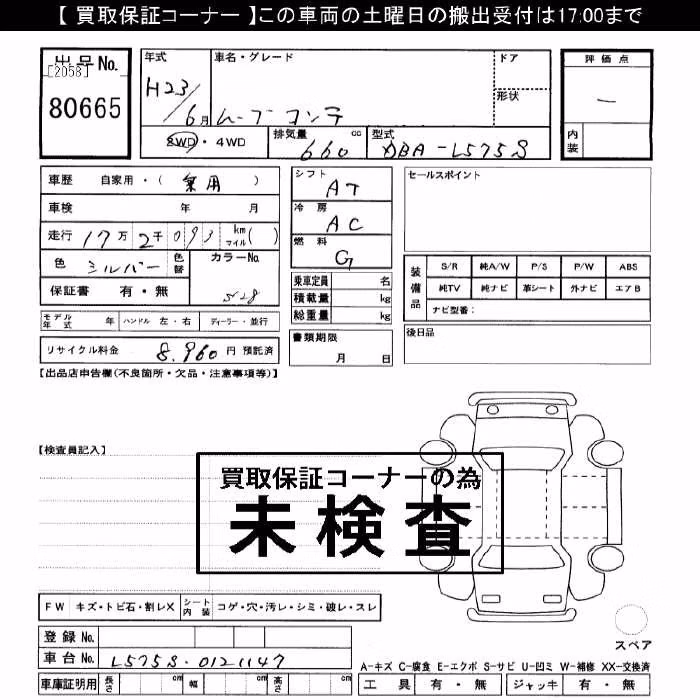 【 買取保証コーナー 】この車両の土曜日の搬出受付は17:00まで
出品No.
[2058]
80665
年式
H23/6月
車名・グレード
ムーブコンテ
ドア
形状
2WD・4WD
排気量
660 cc
型式
DBA-L575S
評価点
—
内装
車歴 自家用・( 業用 )
車検 年 月
走行 17万2千093 km マイル( )
色 シルバー
色替
カラーNo.
S28
保証書 有・無
シフト
AT
冷房
AC
燃料
G
乗車定員 名
積載量 kg
総重量 kg
セールスポイント
装備品
S/R 純A/W P/S P/W ABS
純TV 純ナビ 革シート 外ナビ エアB
ナビ型番:
モデル年式 年 ハンドル 左・右 ディーラー・並行
書類期限
月 日
後日品
リサイクル料金 8,960 円 預託済
【出品店申告欄(不良箇所・欠品・注意事項等)】
【検査員記入】
買取保証コーナーの為
未検査
FW キズ・トビ石・割レX
シート内装 コゲ・穴・汚レ・シミ・破レ・スレ
登録No.
車台No. L575S-0121147
車庫証明用 長さ cm 幅 cm 高さ cm
スペア
A-キズ C-腐食 E-エクボ S-サビ U-凹ミ W-補修 XX-交換済
工具 有・無 ジャッキ 有・無